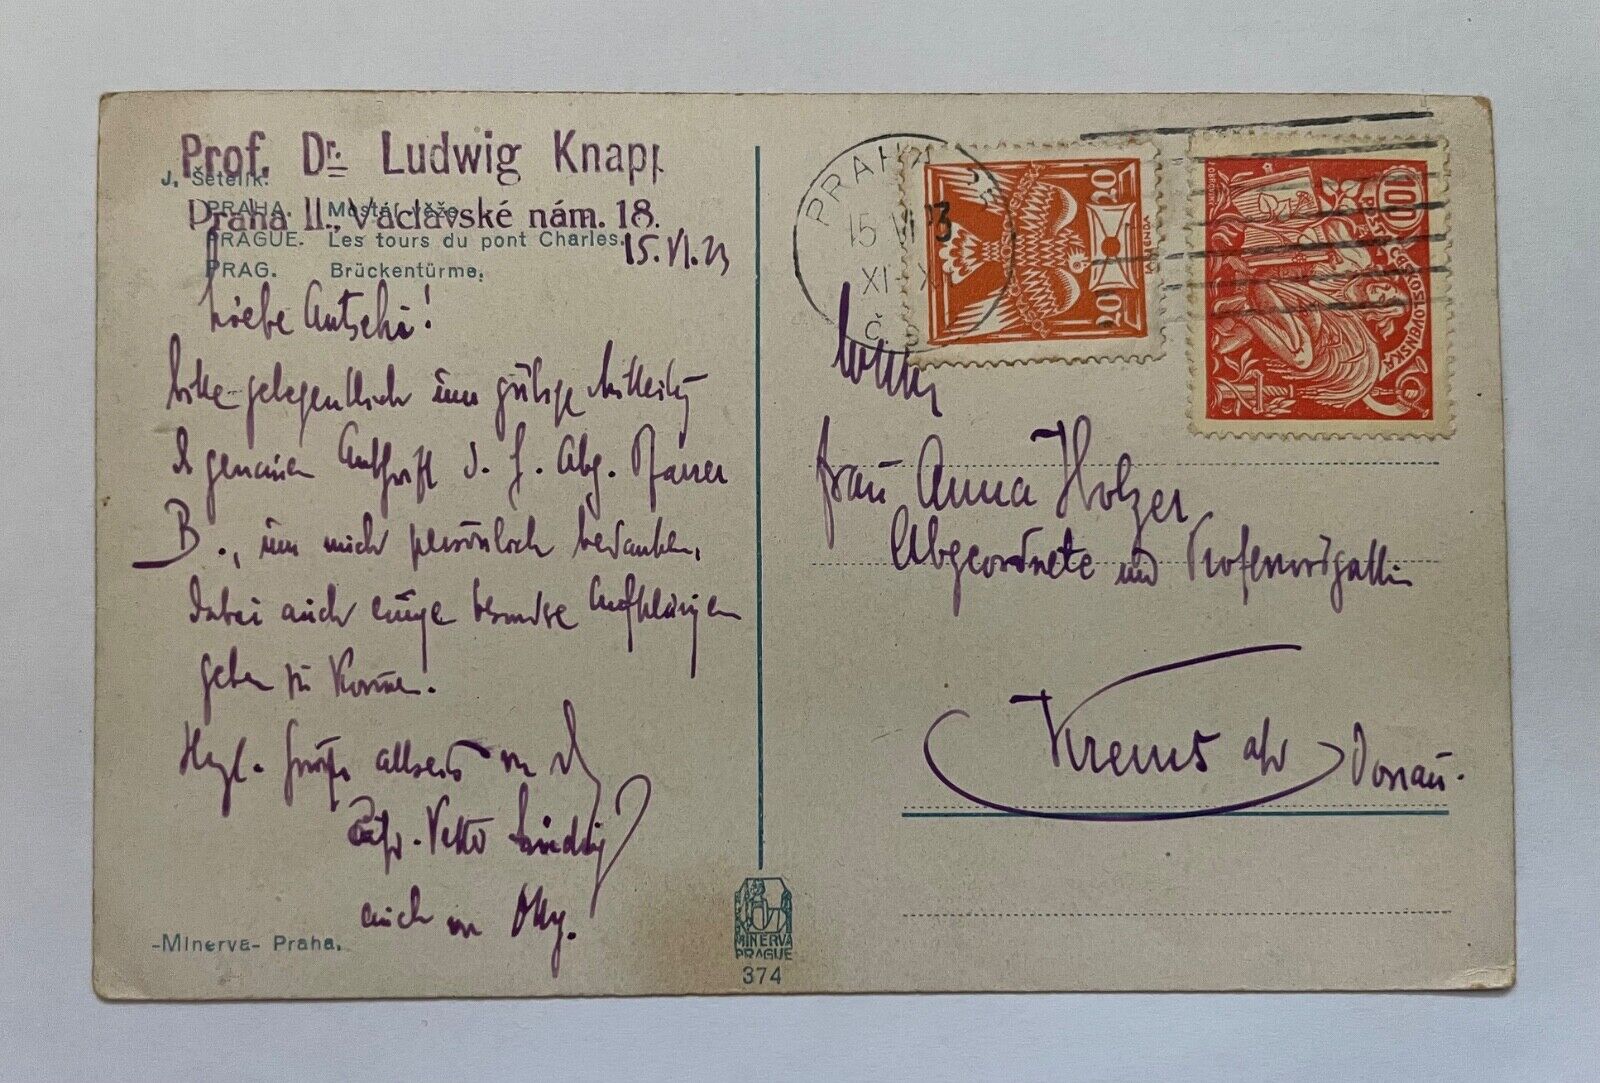 Prof. Dr. Ludwig Knapp
J. Šetelík.
Praha II., Václavské nám. 18.
PRAHA. Mostá věže.
PRAGUE. Les tours du pont Charles.
PRAG. Brückentürme.
15.VI.23
Liebe Antschi!
Bitte gelegentlich um gütige Mitteilg
d genauen Anschrift d. H. Abg.
B., um mich persönlich bedanken,
dabei auch einige besondre Aufklärungen
geben zu können.
Hzl. Grüße allseits von
Vetter
auch von
-Minerva- Praha.
MINERVA
PRAGUE
374
PRAHA
15 VI 23
XI-XII
Č.S.
20
20
100
POŠTA
ČESKOSLOVENSKÁ
Frau Anna Holzer
Abgeordnete und Professorsgattin
Krems a/d Donau.